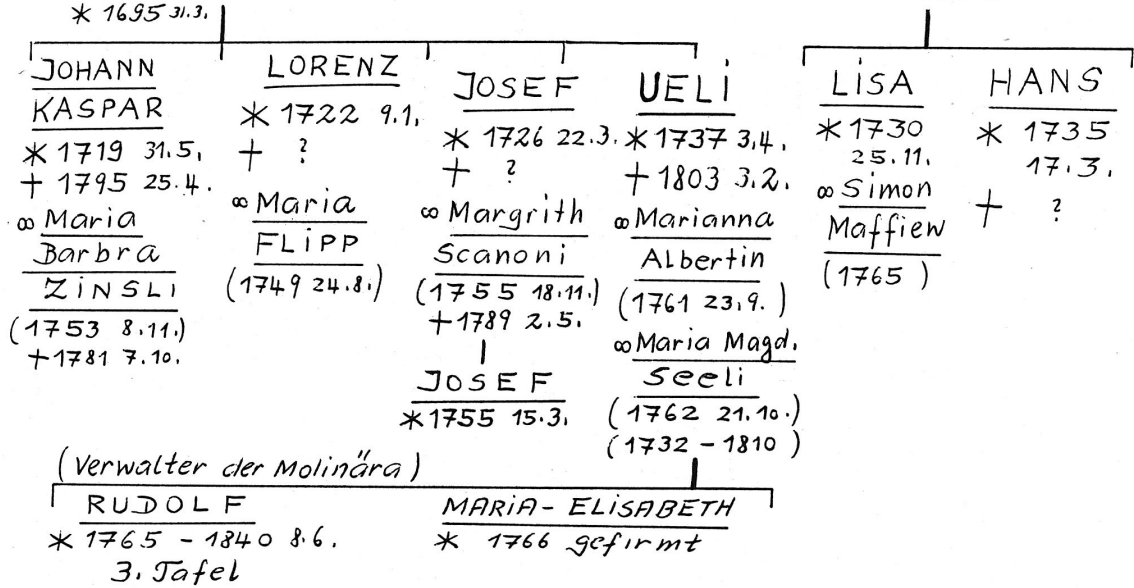 * 1695 31.3.
JOHANN
KASPAR
* 1719 31.5.
+ 1795 25.4.
∞ Maria
Barbra
ZINSLI
(1753 8.11.)
+1781 7.10.
LORENZ
* 1722 9.1.
+ ?
∞ Maria
FLIPP
(1749 24.8.)
JOSEF
* 1726 22.3.
+ ?
∞ Margrith
Scanoni
(1755 18.11.)
+1789 2.5.
JOSEF
* 1755 15.3.
UELI
* 1737 3.4.
+ 1803 3.2.
∞ Marianna
Albertin
(1761 23.9.)
∞ Maria Magd.
Seeli
(1762 21.10.)
(1732 - 1810)
LISA
* 1730
25.11.
∞ Simon
Maffiew
(1765 )
HANS
* 1735
17.3.
+ ?
(Verwalter der Molinära)
RUDOLF
* 1765 - 1840 8.6.
3. Tafel
MARIA - ELISABETH
* 1766 gefirmt